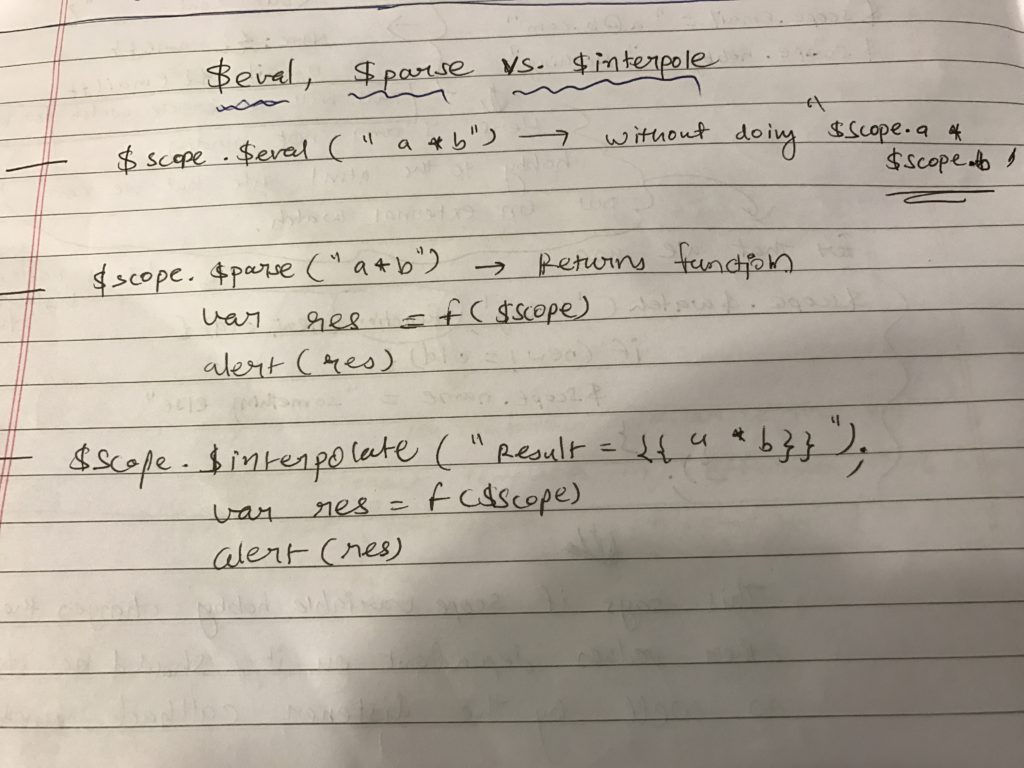 $eval, $parse vs. $interpole
— $scope.$eval ("a * b") → without doing "$scope.a *
$scope.b"
— $scope. $parse ("a * b") → Returns function
var res = f($scope)
alert (res)
— $scope. $interpolate ("Result = {{ a * b}}");
var res = f($scope)
alert (res)